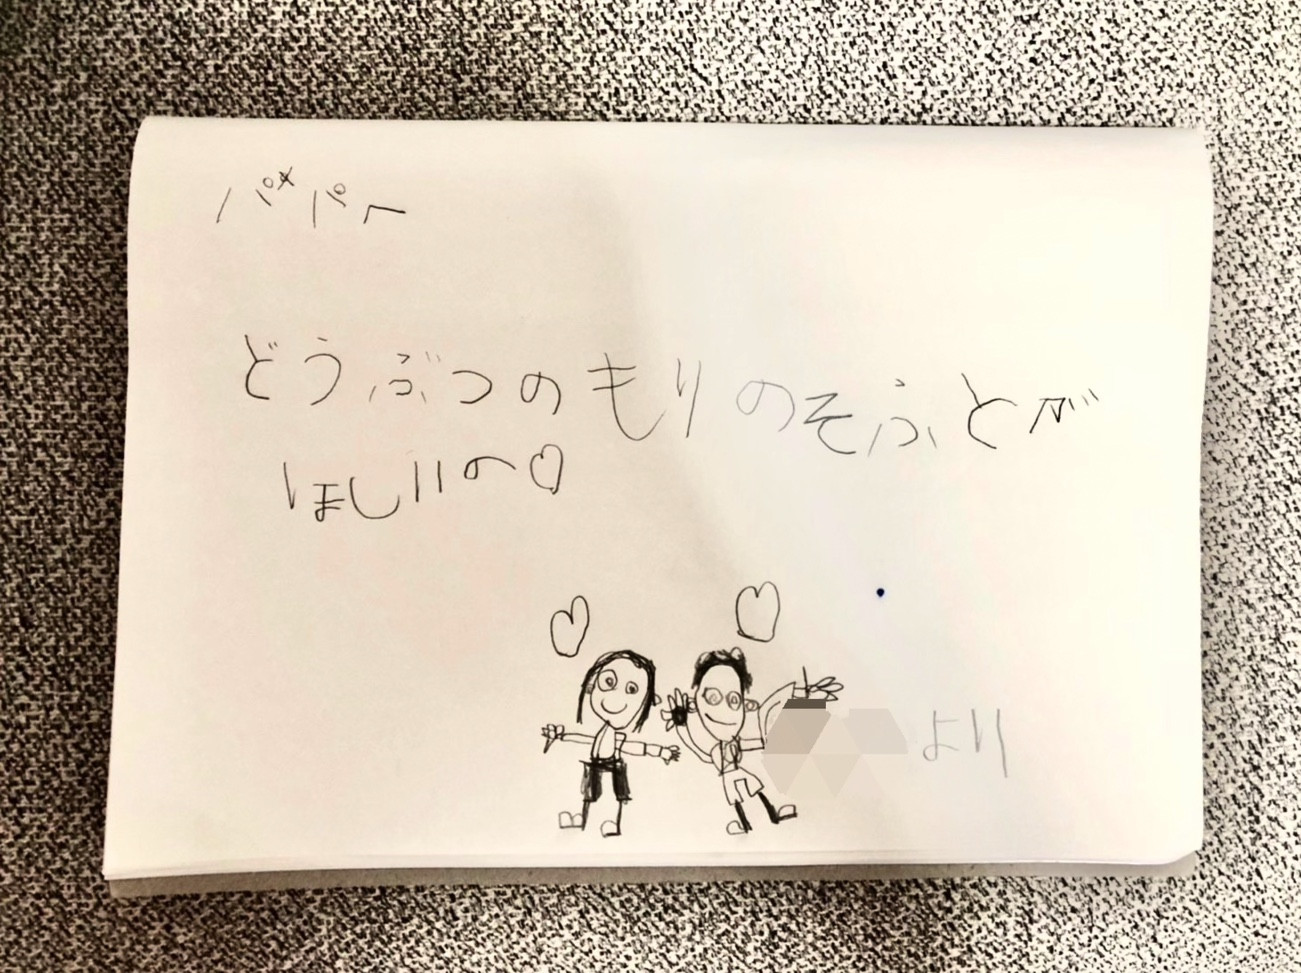 パパへ
どうぶつのもりのそふとが
ほしいの♡
より